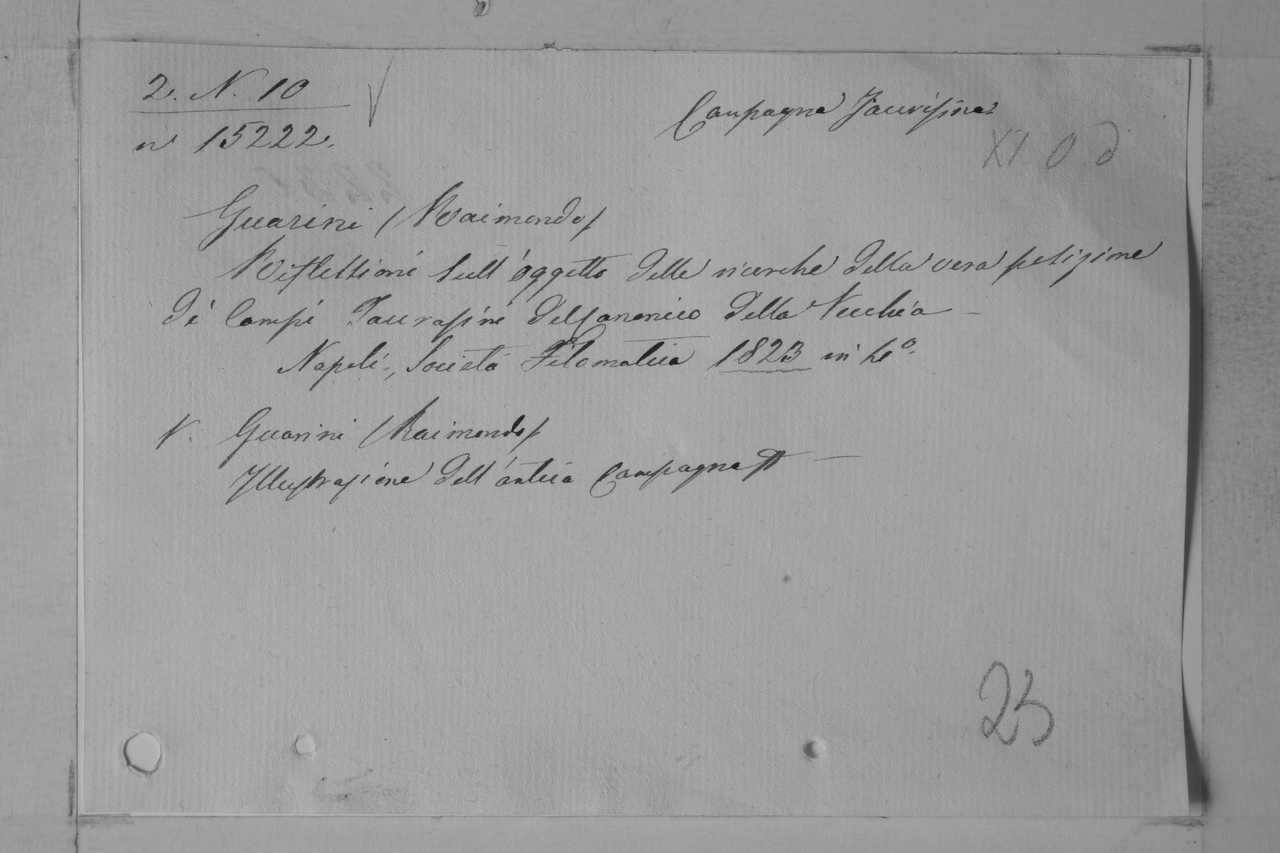 2. N. 10
Campagna Taurasina
n° 15222.
XI O d
Guarini (Raimondo)
Riflessioni sull'oggetto delle ricerche della vera posizione
di Campi Taurasini del Canonico della Vecchia –
Napoli, Società Filomatica 1823 in 4°.
V. Guarini (Raimondo)
Illustrazione dell'antica Campagna –
25